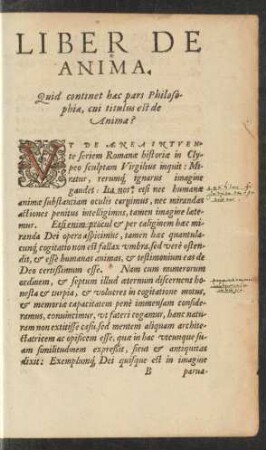 LIBER DE
ANIMA.
Quid continet hæc pars Philoso-
phiæ, cui titulus est de
Anima?
VT DE ÆNEA INTVEN-
te seriem Romanæ historiæ in Cly-
peo sculptam Virgilius inquit: Mi-
ratur, rerumq; ignarus imagine
gaudet: Ita nos, etsi nec humanæ
animæ substantiam oculis cernimus, nec mirandas
actiones penitus intelligimus, tamen imagine læte-
mur. Etsi enim procul & per caliginem hæc mi-
randa Dei opera aspicimus, tamen hæc quantula-
cunq; cogitatio non est fallax vmbra, sed verè osten-
dit, & esse humanas animas, & testimonium eas de
Deo certissimum esse. Nam cum numerorum
ordinem, & septum illud æternum discernens ho-
nesta & turpia, & volucres in cogitatione motus,
& memoriæ capacitatem penè immensam conside-
ramus, conuincimur, vt fateri cogamur, hanc natu-
ram non extitisse casu, sed mentem aliquam archite-
ctatricem ac opificem esse, quæ in hac vtcunque su-
am similitudinem expressit, sicut & antiquitas
dixit: Exemplumq; Dei quisque est in imagine
B parua-